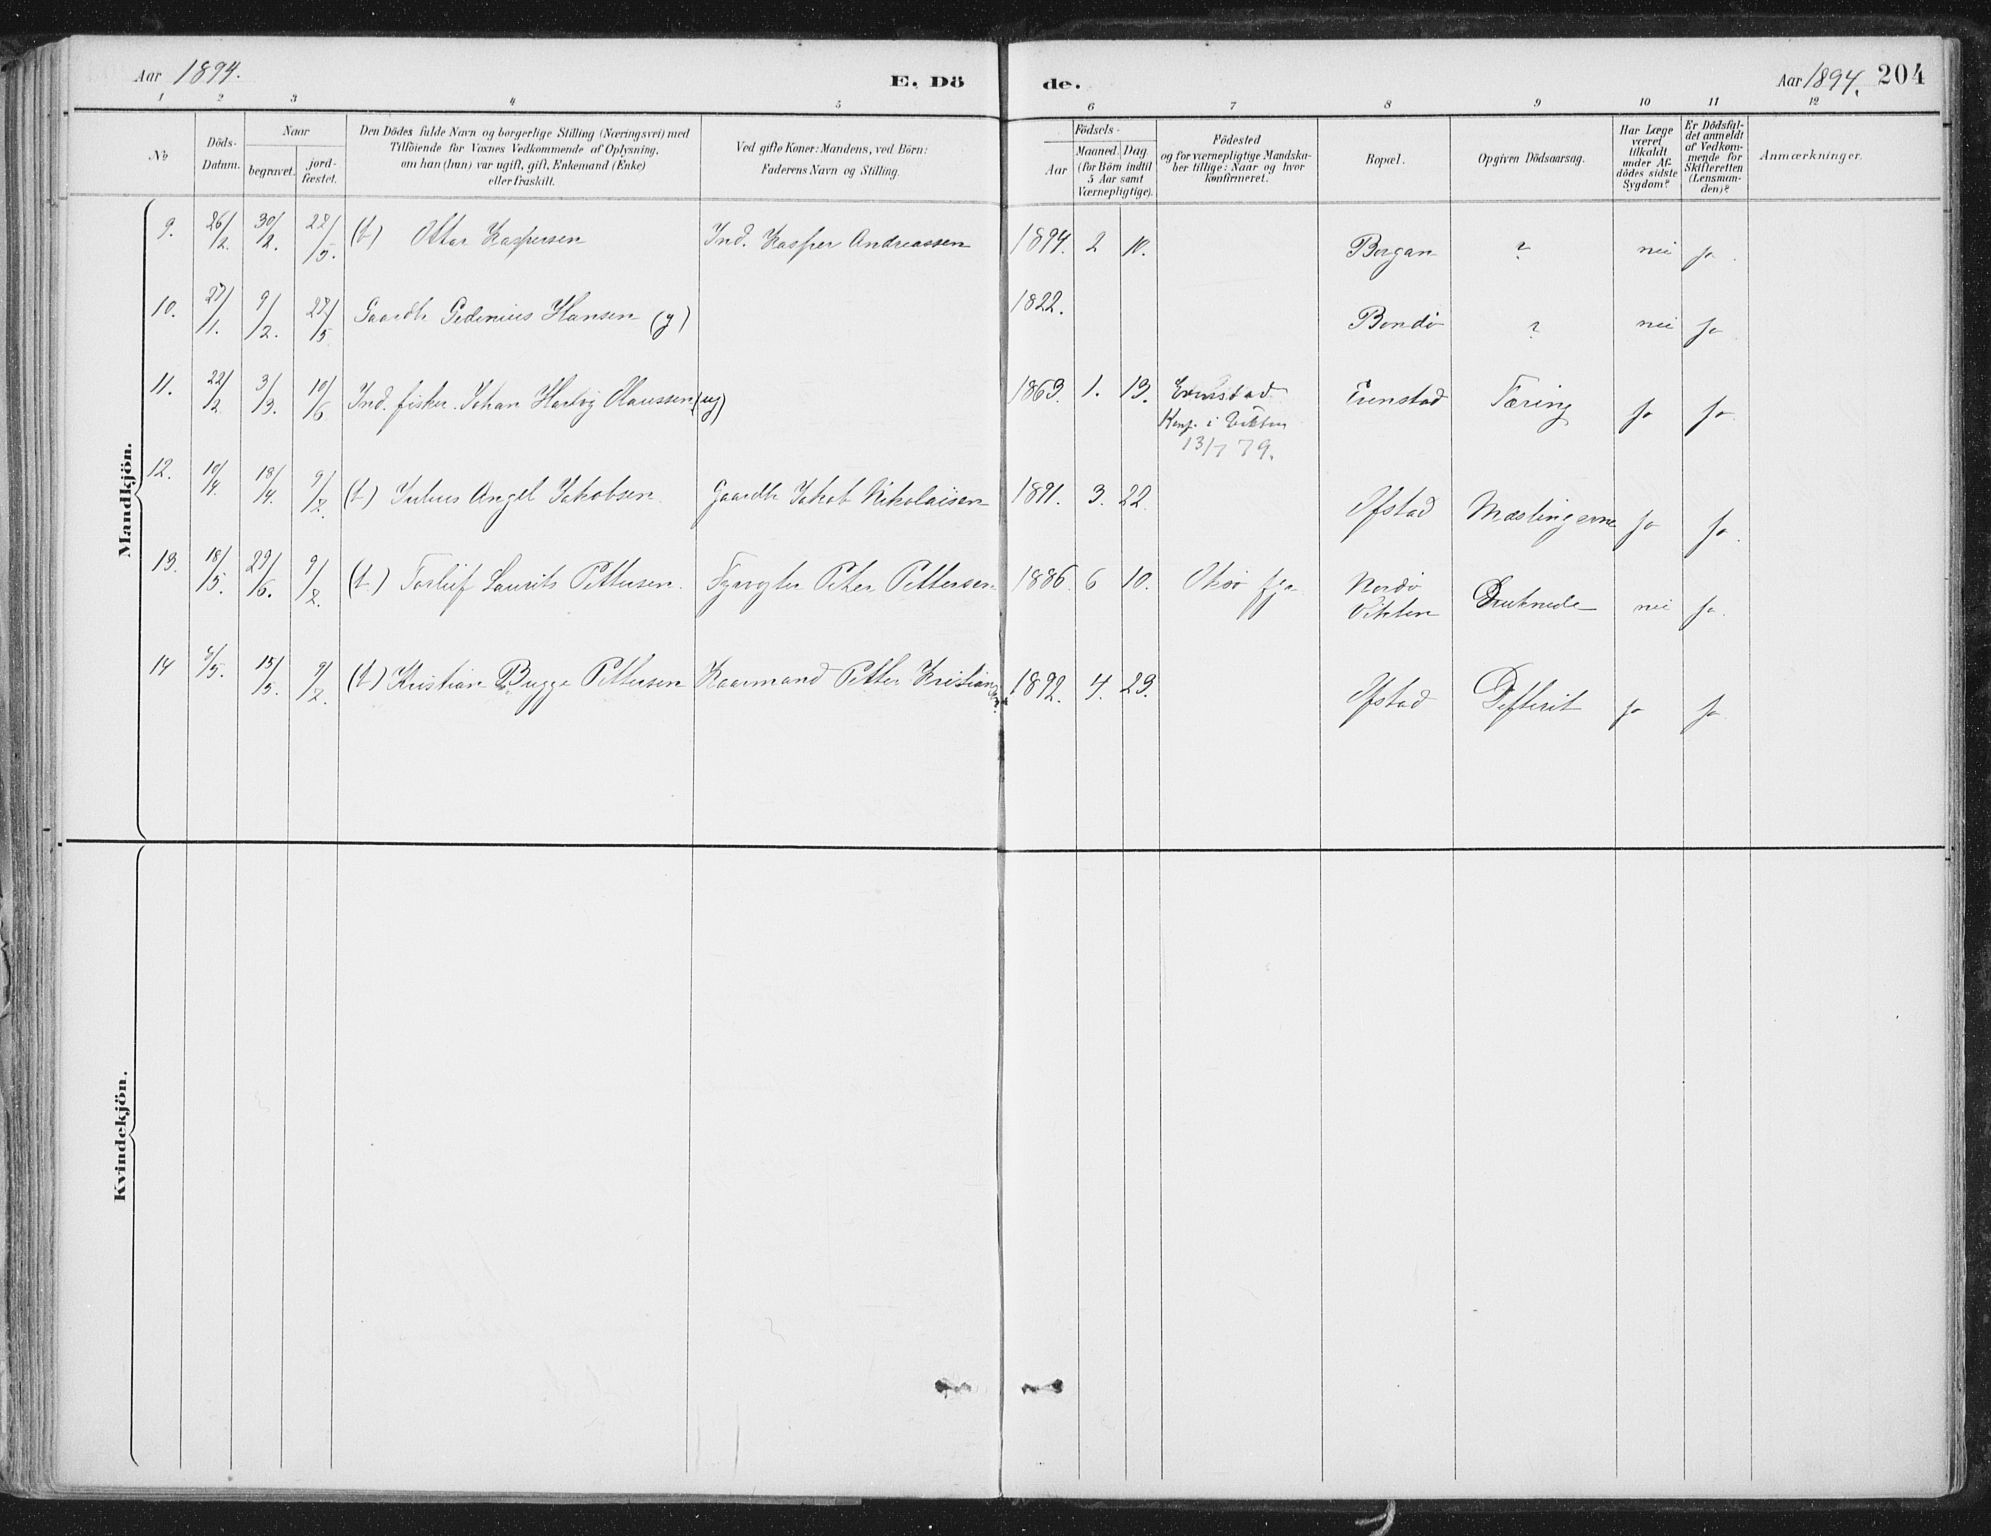 Aar 1894.
E. Dö
de.
Aar 1894. 204
1 2 3 4 5 6 7 8 9 10 11 12
No
Döds-
Datum.
Naar
begravet.
jord-
fæstet.
Den Dödes fulde Navn og borgerlige Stilling (Næringsvei) med
Tilföiende for Voxnes Vedkommende af Oplysning,
om han (hun) var ugift, gift, Enkemand (Enke)
eller fraskilt.
Ved gifte Koner: Mandens, ved Börn:
Faderens Navn og Stilling.
Födsels-
Aar
Maaned. Dag
(for Börn indtil
5 Aar samt
Værnepligtige).
Födested
og for værnepligtige Mandska-
ber tillige: Naar og hvor
konfirmeret.
Bopæl.
Opgiven Dödsaarsag.
Har Læge
været
tilkaldt
under Af-
dödes sidste
Sygdom?
Er Dödsfal-
det anmeldt
af Vedkom-
mende for
Skifteretten
(Lensman-
den)?
Anmærkninger.
Mandkjön.
9. 26/2. 30/2. 28/5. (b) Ottar Kaspersen Ind. Kasper Andreassen 1894. 2 10. Borgan ? nei ja.
10. 27/1. 9/2. 28/5 Gaardbr Pedenius Hansen (g) 1822. Bondö ? nei ja
11. 22/2 3/3. 10/6 Ind. fisker. Johan Hartvig Olaussen (ug) 1863. 1. 13. Evenstad Evenstad Tæring ja ja.
Konf. i Vikten
13/7 79.
12. 10/4. 18/4. 9/7. (b) Julius Angel Jakobsen. Gaardbr Jakob Nikolaisen 1891. 3. 22. Ofstad Mæslingerne ja ja.
13. 18/5. 29/6. 9/7. (b) Torleif Laurits Pettersen. Fyrvogter Peter Pettersen 1886. 6 10. Nordö
Vikten Druknede nei ja.
14 6/5. 15/5. 9/7. (b) Kristian Bugge Pettersen Kaarmand Petter Kristiansen. 1892. 4. 29. Ofstad Difterit ja ja.
Kvindekjön.